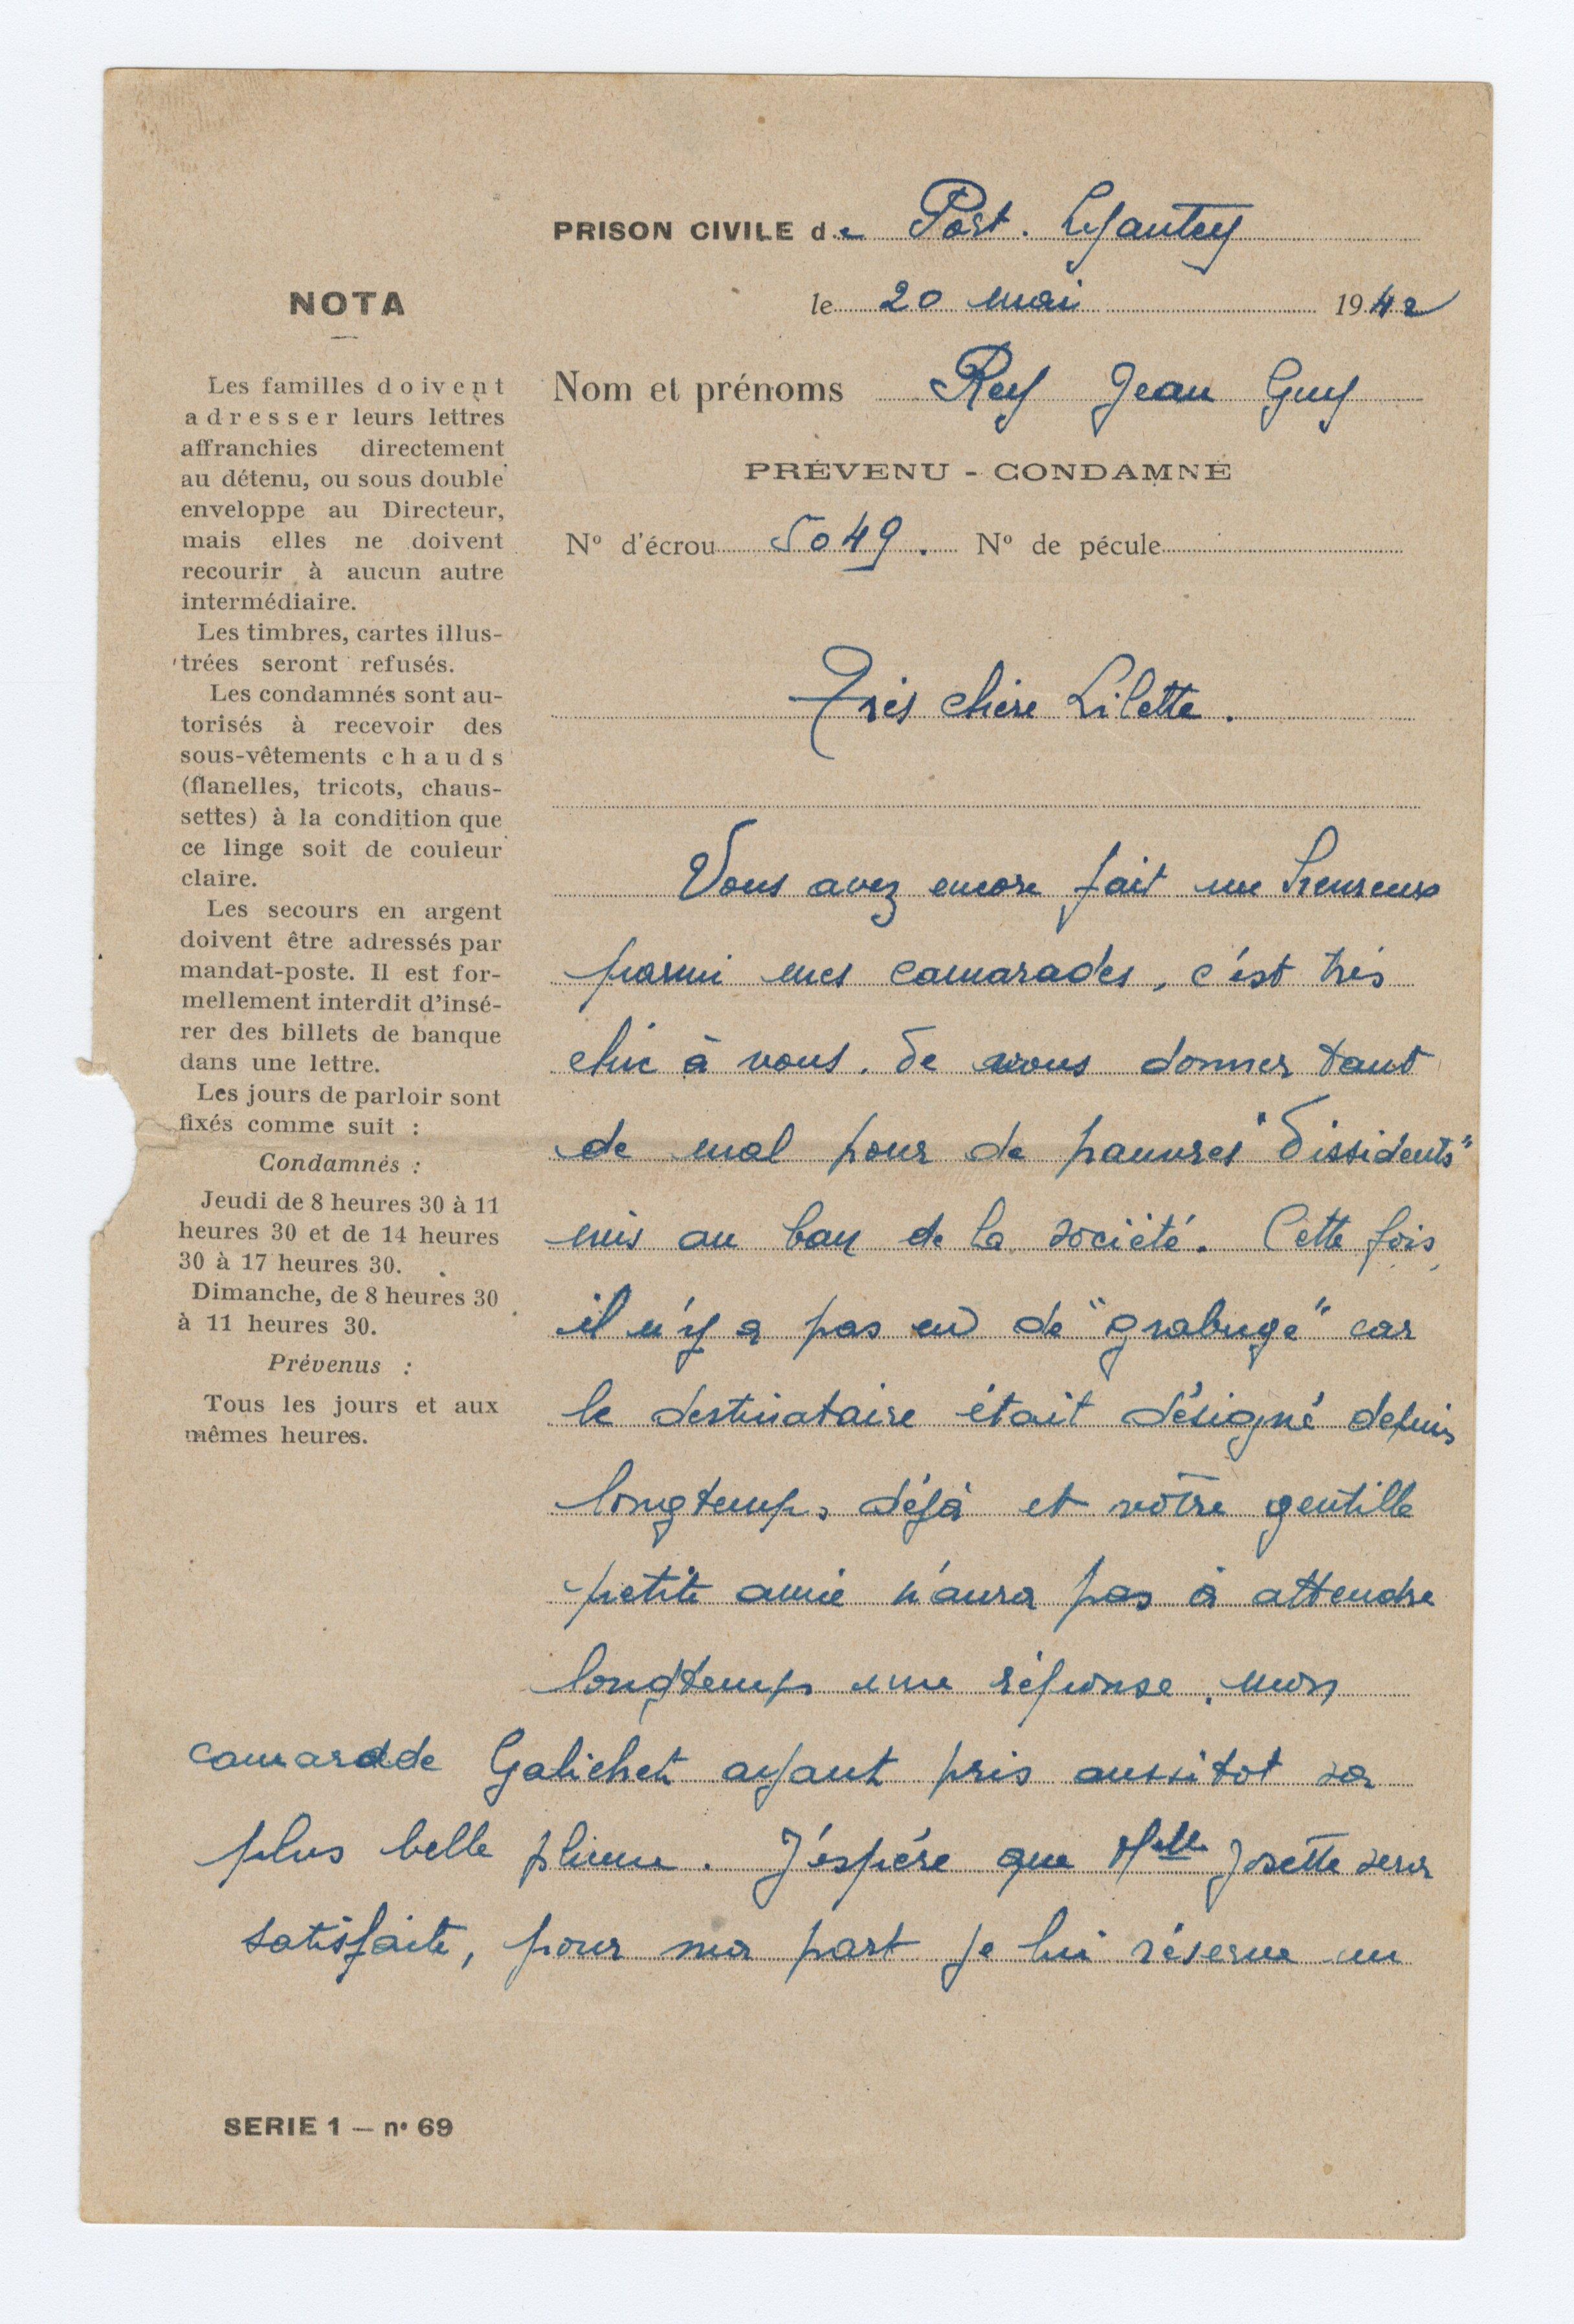 PRISON CIVILE de Port. Lyautey
le 20 mai 1942
Nom et prénoms Rey Jean Guy
PRÉVENU - CONDAMNÉ
N° d'écrou 5049. N° de pécule
NOTA
Les familles doivent
adresser leurs lettres
affranchies directement
au détenu, ou sous double
enveloppe au Directeur,
mais elles ne doivent
recourir à aucun autre
intermédiaire.
Les timbres, cartes illus-
trées seront refusés.
Les condamnés sont au-
torisés à recevoir des
sous-vêtements chauds
(flanelles, tricots, chaus-
settes) à la condition que
ce linge soit de couleur
claire.
Les secours en argent
doivent être adressés par
mandat-poste. Il est for-
mellement interdit d'insé-
rer des billets de banque
dans une lettre.
Les jours de parloir sont
fixés comme suit :
Condamnés :
Jeudi de 8 heures 30 à 11
heures 30 et de 14 heures
30 à 17 heures 30.
Dimanche, de 8 heures 30
à 11 heures 30.
Prévenus :
Tous les jours et aux
mêmes heures.
Très chère Lilette.
Vous avez encore fait un heureux
parmi mes camarades, c'est très
chic à vous. de vous donner tant
de mal pour de pauvres "dissidents"
mis au ban de la société. Cette fois
il n'y a pas eu de "grabuge" car
le destinataire était désigné depuis
longtemps déjà et votre gentille
petite amie n'aura pas à attendre
longtemps une réponse, mon
camarade Galichet ayant pris aussitot sa
plus belle plume. J'éspère que Melle Josette sera
satisfaite, pour ma part je lui réserve un
SERIE 1 — n° 69